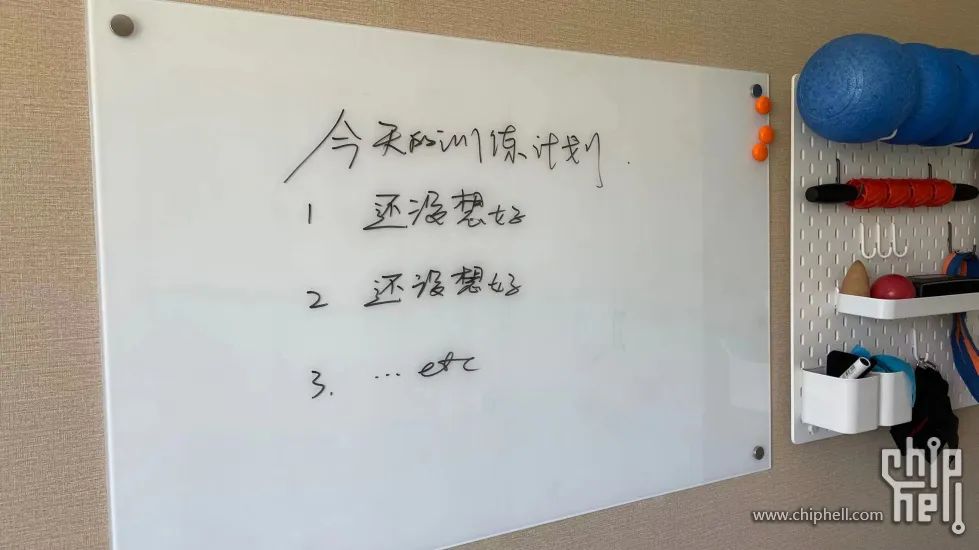 今天的训练计划.
1 还没想好
2 还没想好
3. ... etc
chip
hell
www.chiphell.com